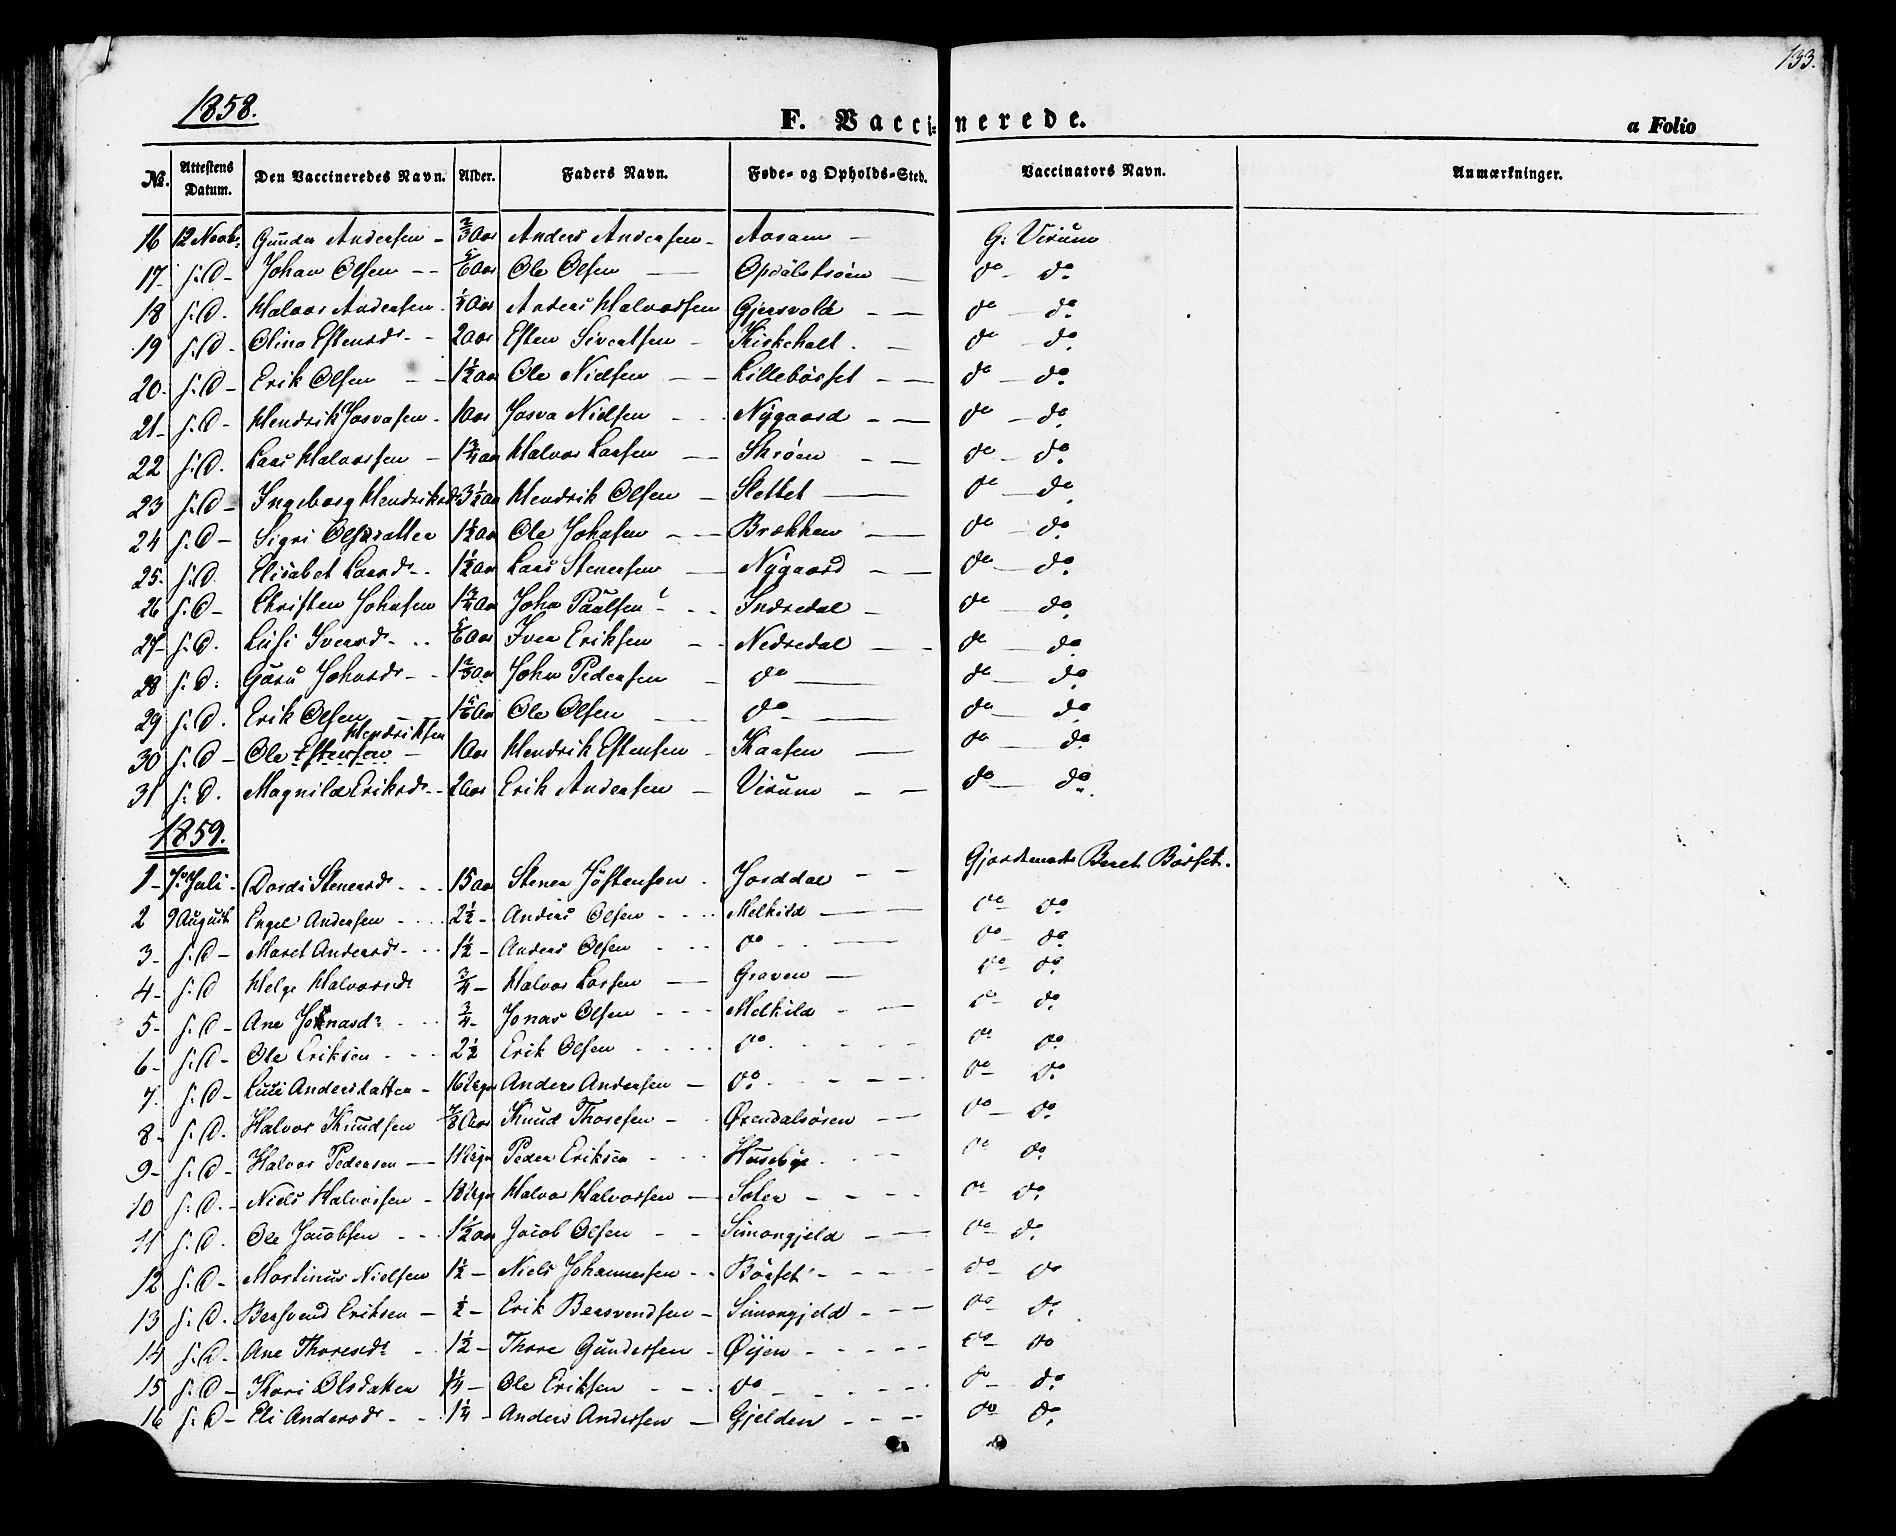 133.
1858.
F. Vaccinerede.
a Folio
No. Attestens Datum. Den Vaccineredes Navn. Alder. Faders Navn. Føde- og Opholds-Sted. Vaccinators Navn. Anmærkninger.
16 12 Novb: Gunder Andersen - 2/3 Aar Anders Andersen - Aaram - G: Virum
17- s: D - Johan Olsen - - 5/6 Aar Ole Olsen - do - do
18 s: D. Halvor Andersen - Aar Anders Halvorsen Gjersvold - - do - do
19 s: D - Olina Estensdr - - 2 Aar Esten Sivertsen - Kirkeholt. - do - do
20- s: D - Erik Olsen - - 1½ Aar Ole Nielsen - - Lillebørset - - do - do
21- s: D - Hendrik Josvasen - 1 Aar Josva Nielsen - - Nÿgaard - - do - do
22 s: D. Lars Halvorsen - 1¾ Aar Halvor Larsen - - Skrøen - - do - do
23 s: D - Ingeborg Hendriksdr 3½ Aar Hendrik Olsen - Slettet - do - do
24 s: D - Sigri Olsdatter 1½ Aar Ole Johnsen - - Brækken - do - do
25- s: D. Elisabet Larsdr - . 1½ Aar Lars Stenersen - Nÿgaard - - do - do
26 s: D - Christen Johnsen Aar John Paulsen - - Indredal - do - do
27- s: D. Lusi Iversdr - . . 5/6 Aar Iver Eriksen - - Nedredal - - do - do
28 s: D: Guru Johnsdr - - 1 2/3 Aar John Pedersen - do - do - do
29 s: D. Erik Olsen - Aar Ole Olsen - do - do - do
Hendriksen
30 s: D - Ole Estensen - 1 Aar Hendrik Estensen - Kaasen - do - do
31 s: D. Magnild Eriksdr - - 2 Aar Erik Andersen - Virum - - do - do
1859.
1- 7de Juli - Dordi Stenersdr - . . 15 Aar Stener Jøstensen . Jorddal - - Gjordemodr Beret Børset.
2 9 August Engel Andersen - . . . 2½ - Anders Olsen - . . . Melkild - do - do
3- s: D - Maret Andersd - . . 1½ - Anders Olsen - . . do - . - do - do
4- s: D Helge Halvorsdr ¾ - Halvor Larsen - Graven - do - do
5- s: D - Ane Jonasdr . . . ¾ - Jonas Olsen - - - Melkild - - do - do
6- s: D - Ole Eriksen . . . 2½ Erik Olsen . . . . do - . - - - do do
7. s: D - Lusi Andersdatter - 16 Uger Anders Andersen - do . - - - - do - do
8- s: D. Halvor Knudsen Aar Knud Thoresen - . Øxendalsøren - - do - do
9- s: D - Halvor Pedersen - Uger Peder Eriksen - . . Husebÿe . - - do do
10 s: D. - Niels Halvorsen - 18 Uger Halvor Halvorsen - Soter - - - - do - do
11 s: D. Ole Jacobsen - - . 1½ Aar Jacob Olsen - - Simongjeld - - do - do
12 s: D - Martinus Nielsen 1½ - Niels Johannesen - - Børset - - - - do - do
13 s: D. Bersvend Eriksen - ½ - Erik Bersvendsen - Simongjeld - - - do - do
14 s: D - Ane Thoresdr - . 1½ - Thore Gundersen - Øijen - - - - - do - do
15 s: D - Kari Olsdatter ¼ - Ole Eriksen - - . do - . - - - do - do
16 s: D - Eli Andersdr - . 1¼ - Anders Andersen - Gjelden - - - - do do